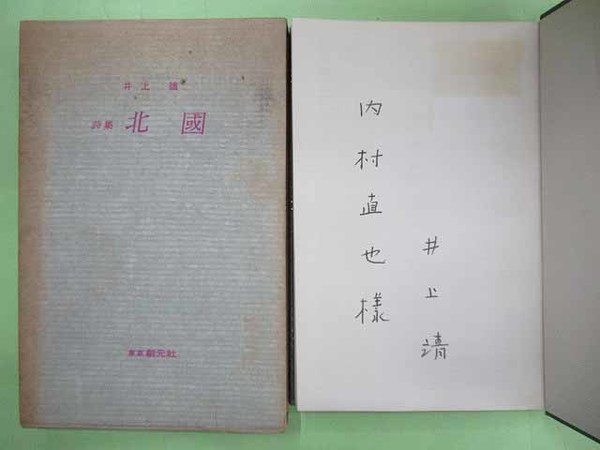 井上靖
詩集 北國
東京創元社
内村直也樣
井上靖